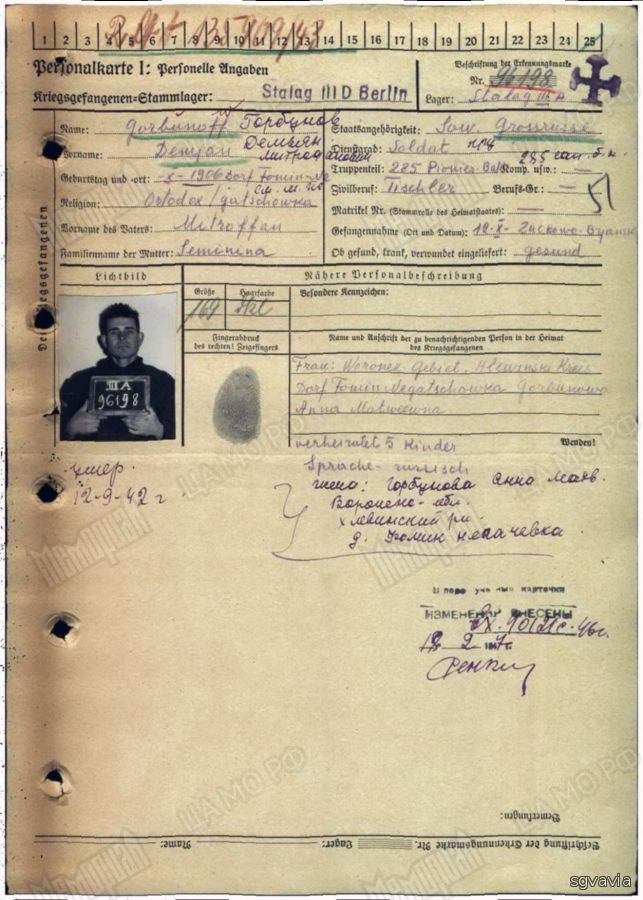 1 2 3 4 5 6 7 8 9 10 11 12 13 14 15 16 17 18 19 20 21 22 23 24 25
Personalkarte I: Personelle Angaben
Kriegsgefangenen-Stammlager: Stalag III D Berlin
Beschriftung der Erkennungsmarke
Nr. 96198
Lager: Stalag III A
Name: Gorbunoff Горбунов
Vorname: Demjan Демьян Митрофанович
Geburtstag und -ort: -X-1906 dorf Fomin-Ne
Religion: Ortodox / gatschowka
Vorname des Vaters: Mitroffan
Familienname der Mutter: Seminina
Staatsangehörigkeit: Sow Grossrusse
Dienstgrad: Soldat
Truppenteil: 285 Pionier-Bat. Komp. usw.: —
Zivilberuf: Tischler Berufs-Gr.: —
Matrikel Nr. (Stammrolle des Heimatstaates): —
Gefangennahme (Ort und Datum): 12-X-
Ob gesund, krank, verwundet eingeliefert: gesund
Des Kriegsgefangenen
Lichtbild
Nähere Personalbeschreibung
Größe
Haarfarbe
Besondere Kennzeichen:
169
Fingerabdruck
des rechten! Zeigefingers
Name und Anschrift der zu benachrichtigenden Person in der Heimat
des Kriegsgefangenen
III A
96198
Frau: Woronez Gebiet, Hlewinski Kreis
Dorf Fomin Negatschowka Gorbunowa
Anna Matweewna
verheiratet 5 Kinder
Wenden!
Sprache - russisch
умер.
12-9-42 г
жена: Горбунова Анна Матв.
Воронеж. обл.
Хлевинский р-н
д. Фомин Негачевка
В перв учетные карточки
ИЗМЕНЕНИЯ ВНЕСЕНЫ
Bemerkungen:
Beschriftung der Erkennungsmarke Nr. Lager: Name:
ЦАМО РФ
sgvavia